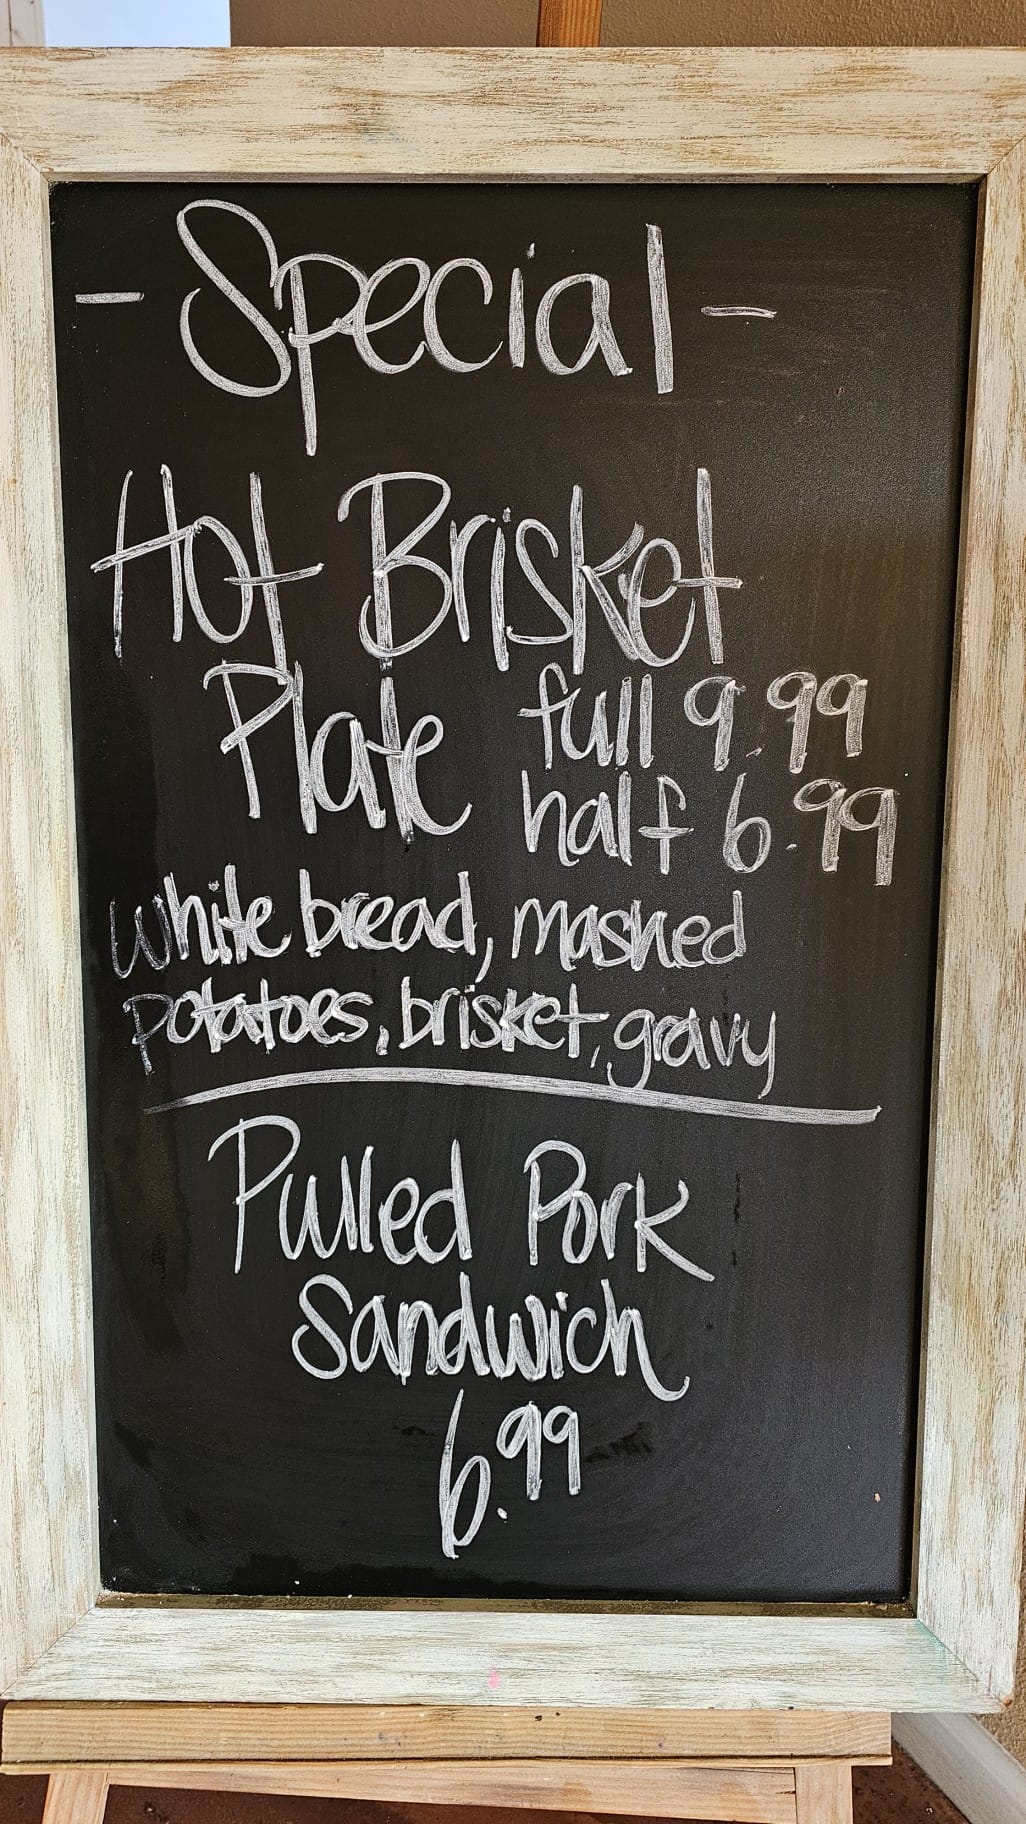 - Special -
Hot Brisket
Plate full 9.99
half 6.99
white bread, mashed
potatoes, brisket, gravy
Pulled Pork
Sandwich
6.99